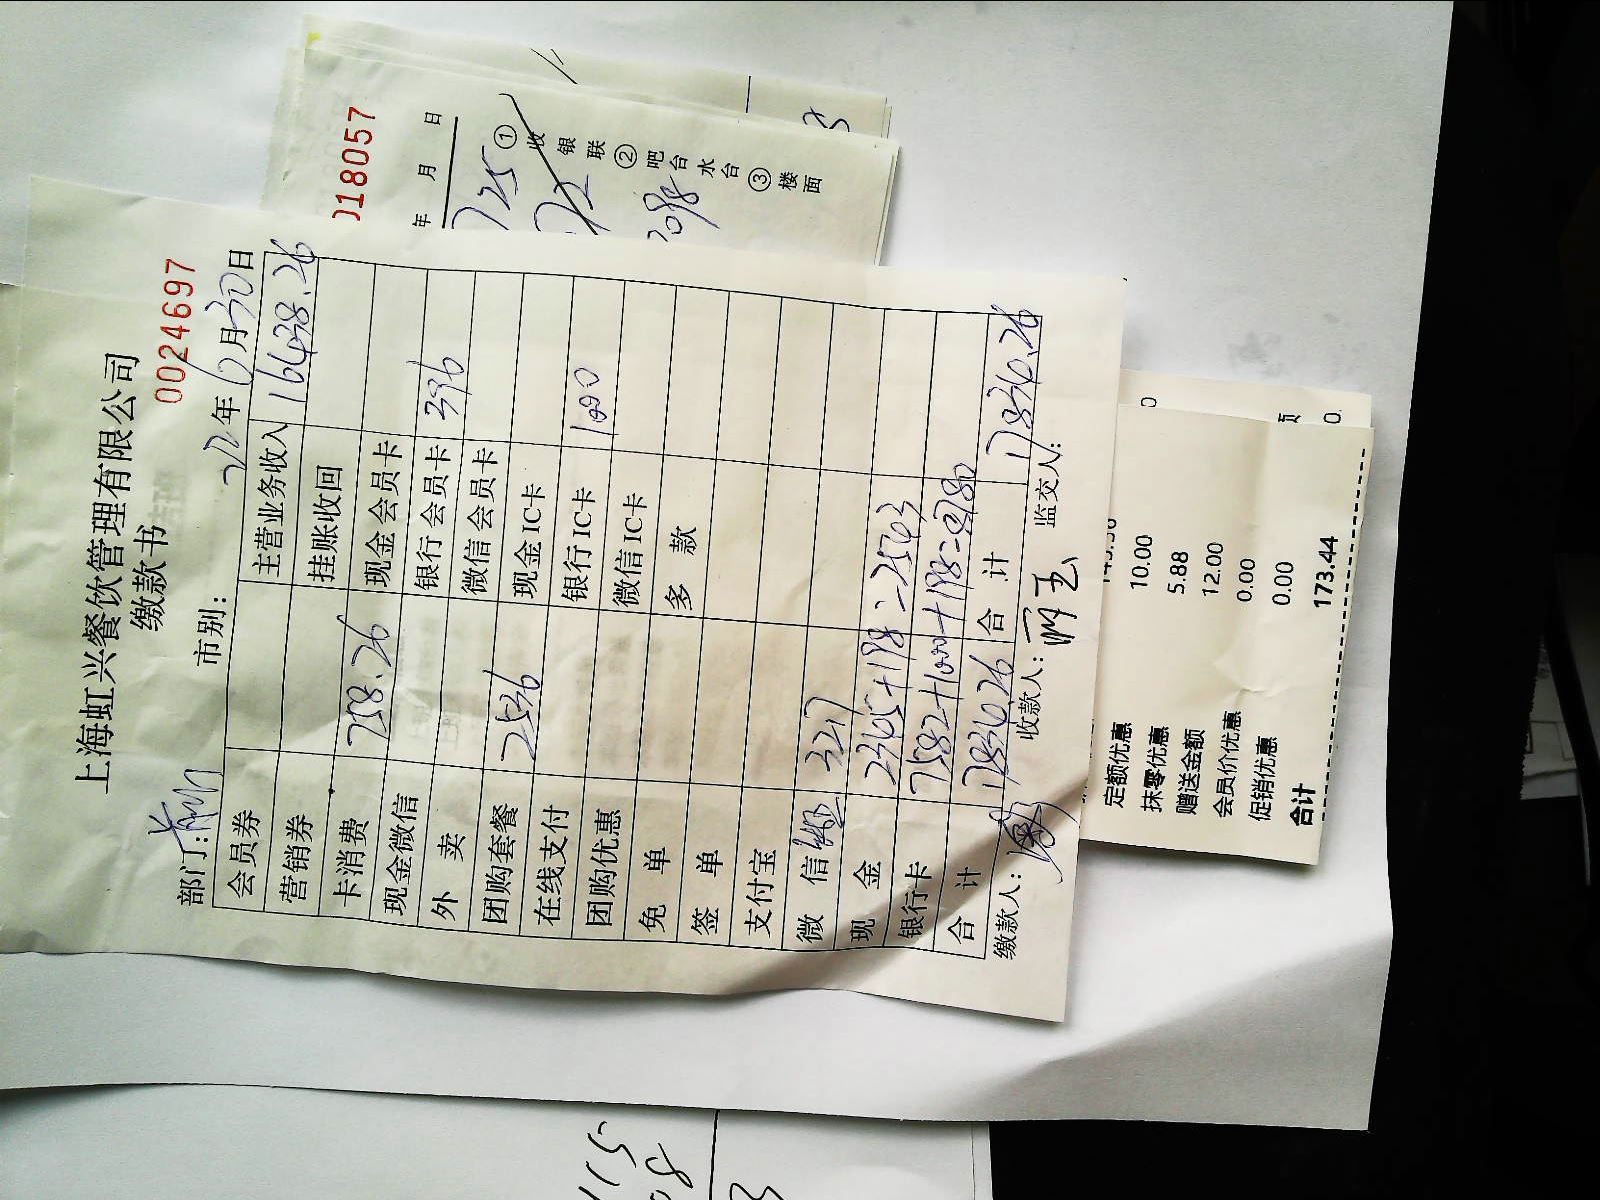 上海虹兴餐饮管理有限公司
缴款书
0024697
部门:
市别:
年6月30日
会员券 主营业务收入 16438.26
营销券 挂账收回
卡消费 258.26 现金会员卡
现金微信 银行会员卡 396
外 卖 微信会员卡
团购套餐 2536 现金IC卡
在线支付 银行IC卡 1000
团购优惠 微信IC卡
免 单 多 款
签 单
支付宝
微 信 327
现 金 2365+198=2563
银行卡
合 计 17836.26 合 计 17836.26
缴款人:
收款人:
监交人:
018057
年 月 日
725
①收银联②吧台水台③楼面
定额优惠 10.00
抹零优惠 5.88
赠送金额 12.00
会员价优惠 0.00
促销优惠 0.00
合计 173.44